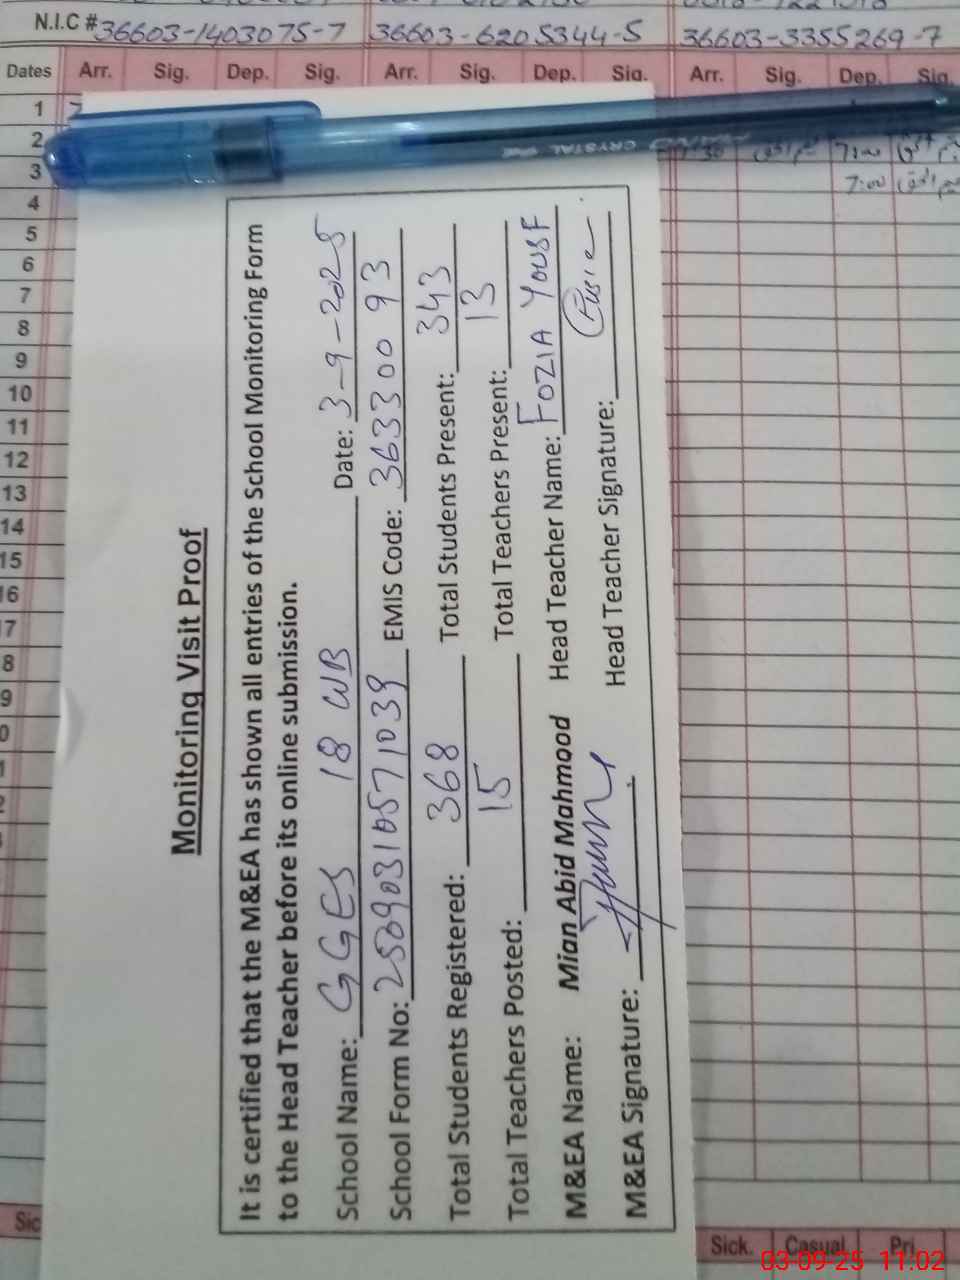 N.I.C # 36603-1403075-7 36603-6205344-5 36603-3355269-7
Dates Arr. Sig. Dep. Sig. Arr. Sig. Dep. Sig. Arr. Sig. Dep. Sig.
1
2 7:00
3 7:00
4
5
6
7
8
9
10
11
12
13
14
15
16
17
8
9
0
Monitoring Visit Proof
It is certified that the M&EA has shown all entries of the School Monitoring Form
to the Head Teacher before its online submission.
School Name: GGES 18 WB Date: 3-9-2025
School Form No: EMIS Code: 36330093
Total Students Registered: 368 Total Students Present: 343
Total Teachers Posted: 15 Total Teachers Present: 13
M&EA Name: Mian Abid Mahmood Head Teacher Name: FOZIA YOUSF
M&EA Signature: Head Teacher Signature:
CRYSTAL
Sic
Sick. Casual Pri.
03-09-25 11:02